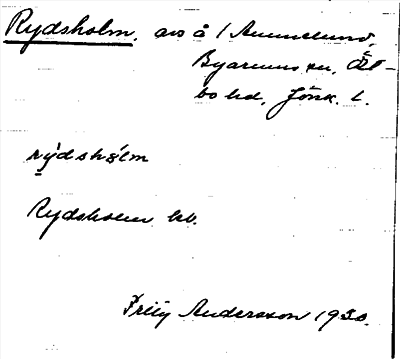 Rydsholm, avs å 1 Amundlund,
Byarums sn, Öst-
bo hd, Jönk. l.
rydshålm
Rydsholm kb.
Frity Andersson 1930.